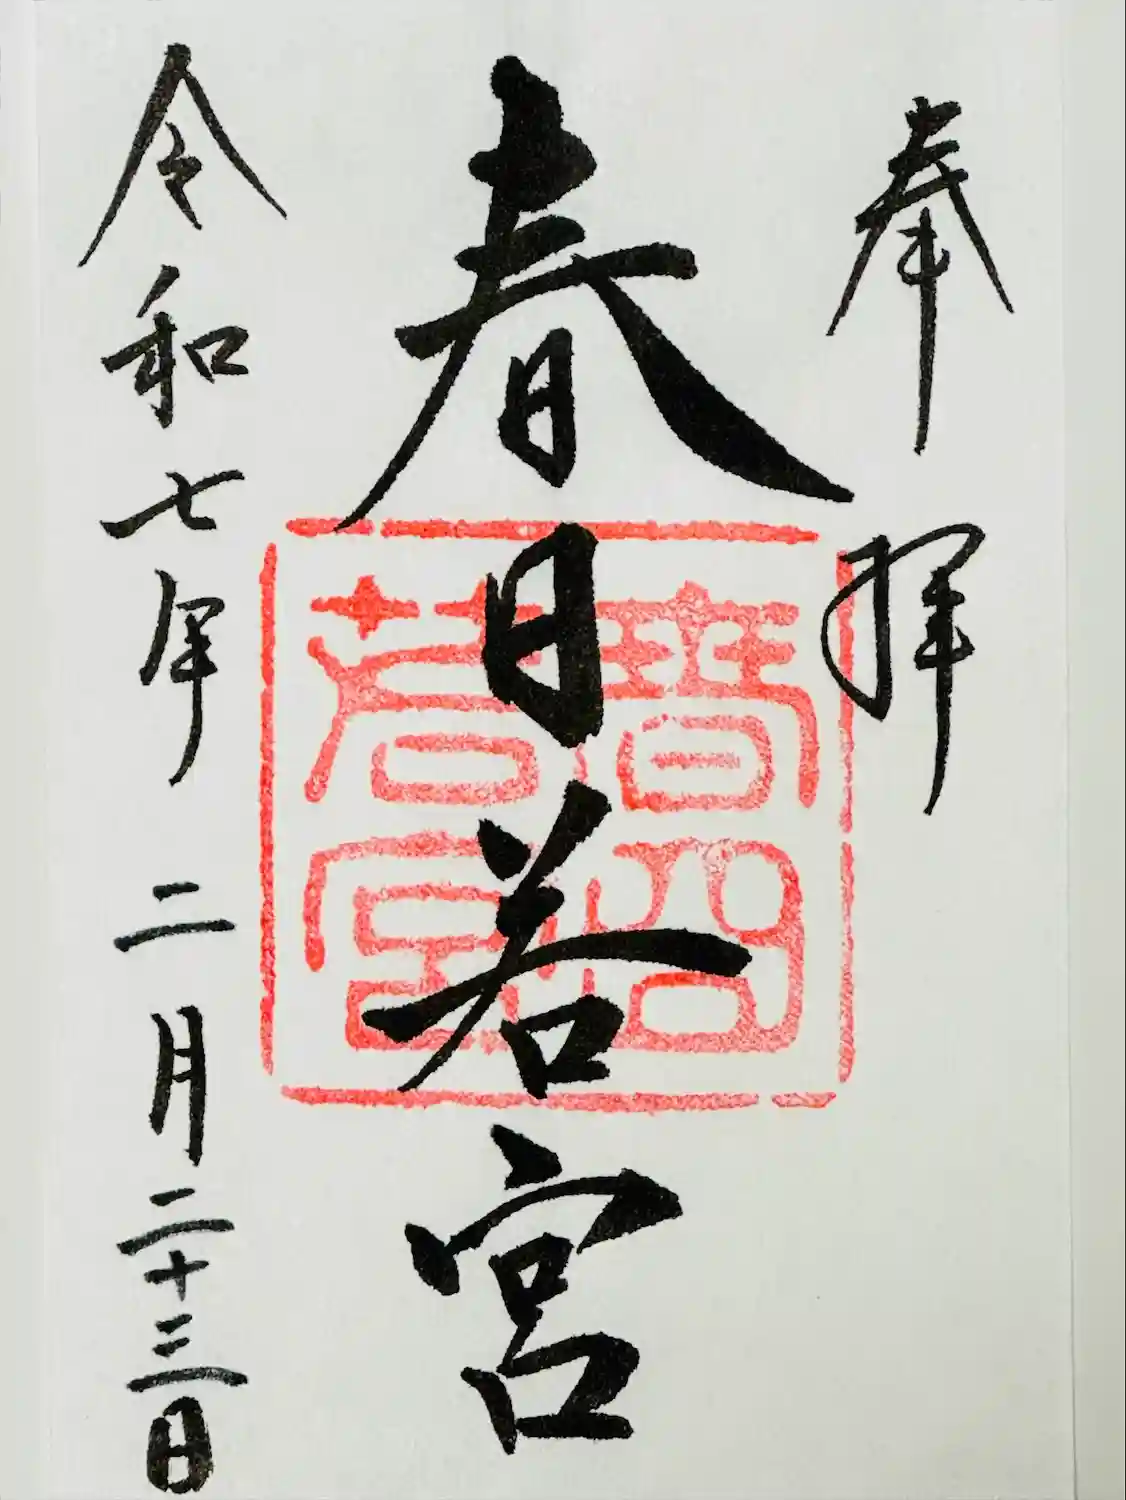 奉拝
春日若宮
令和七年二月二十三日